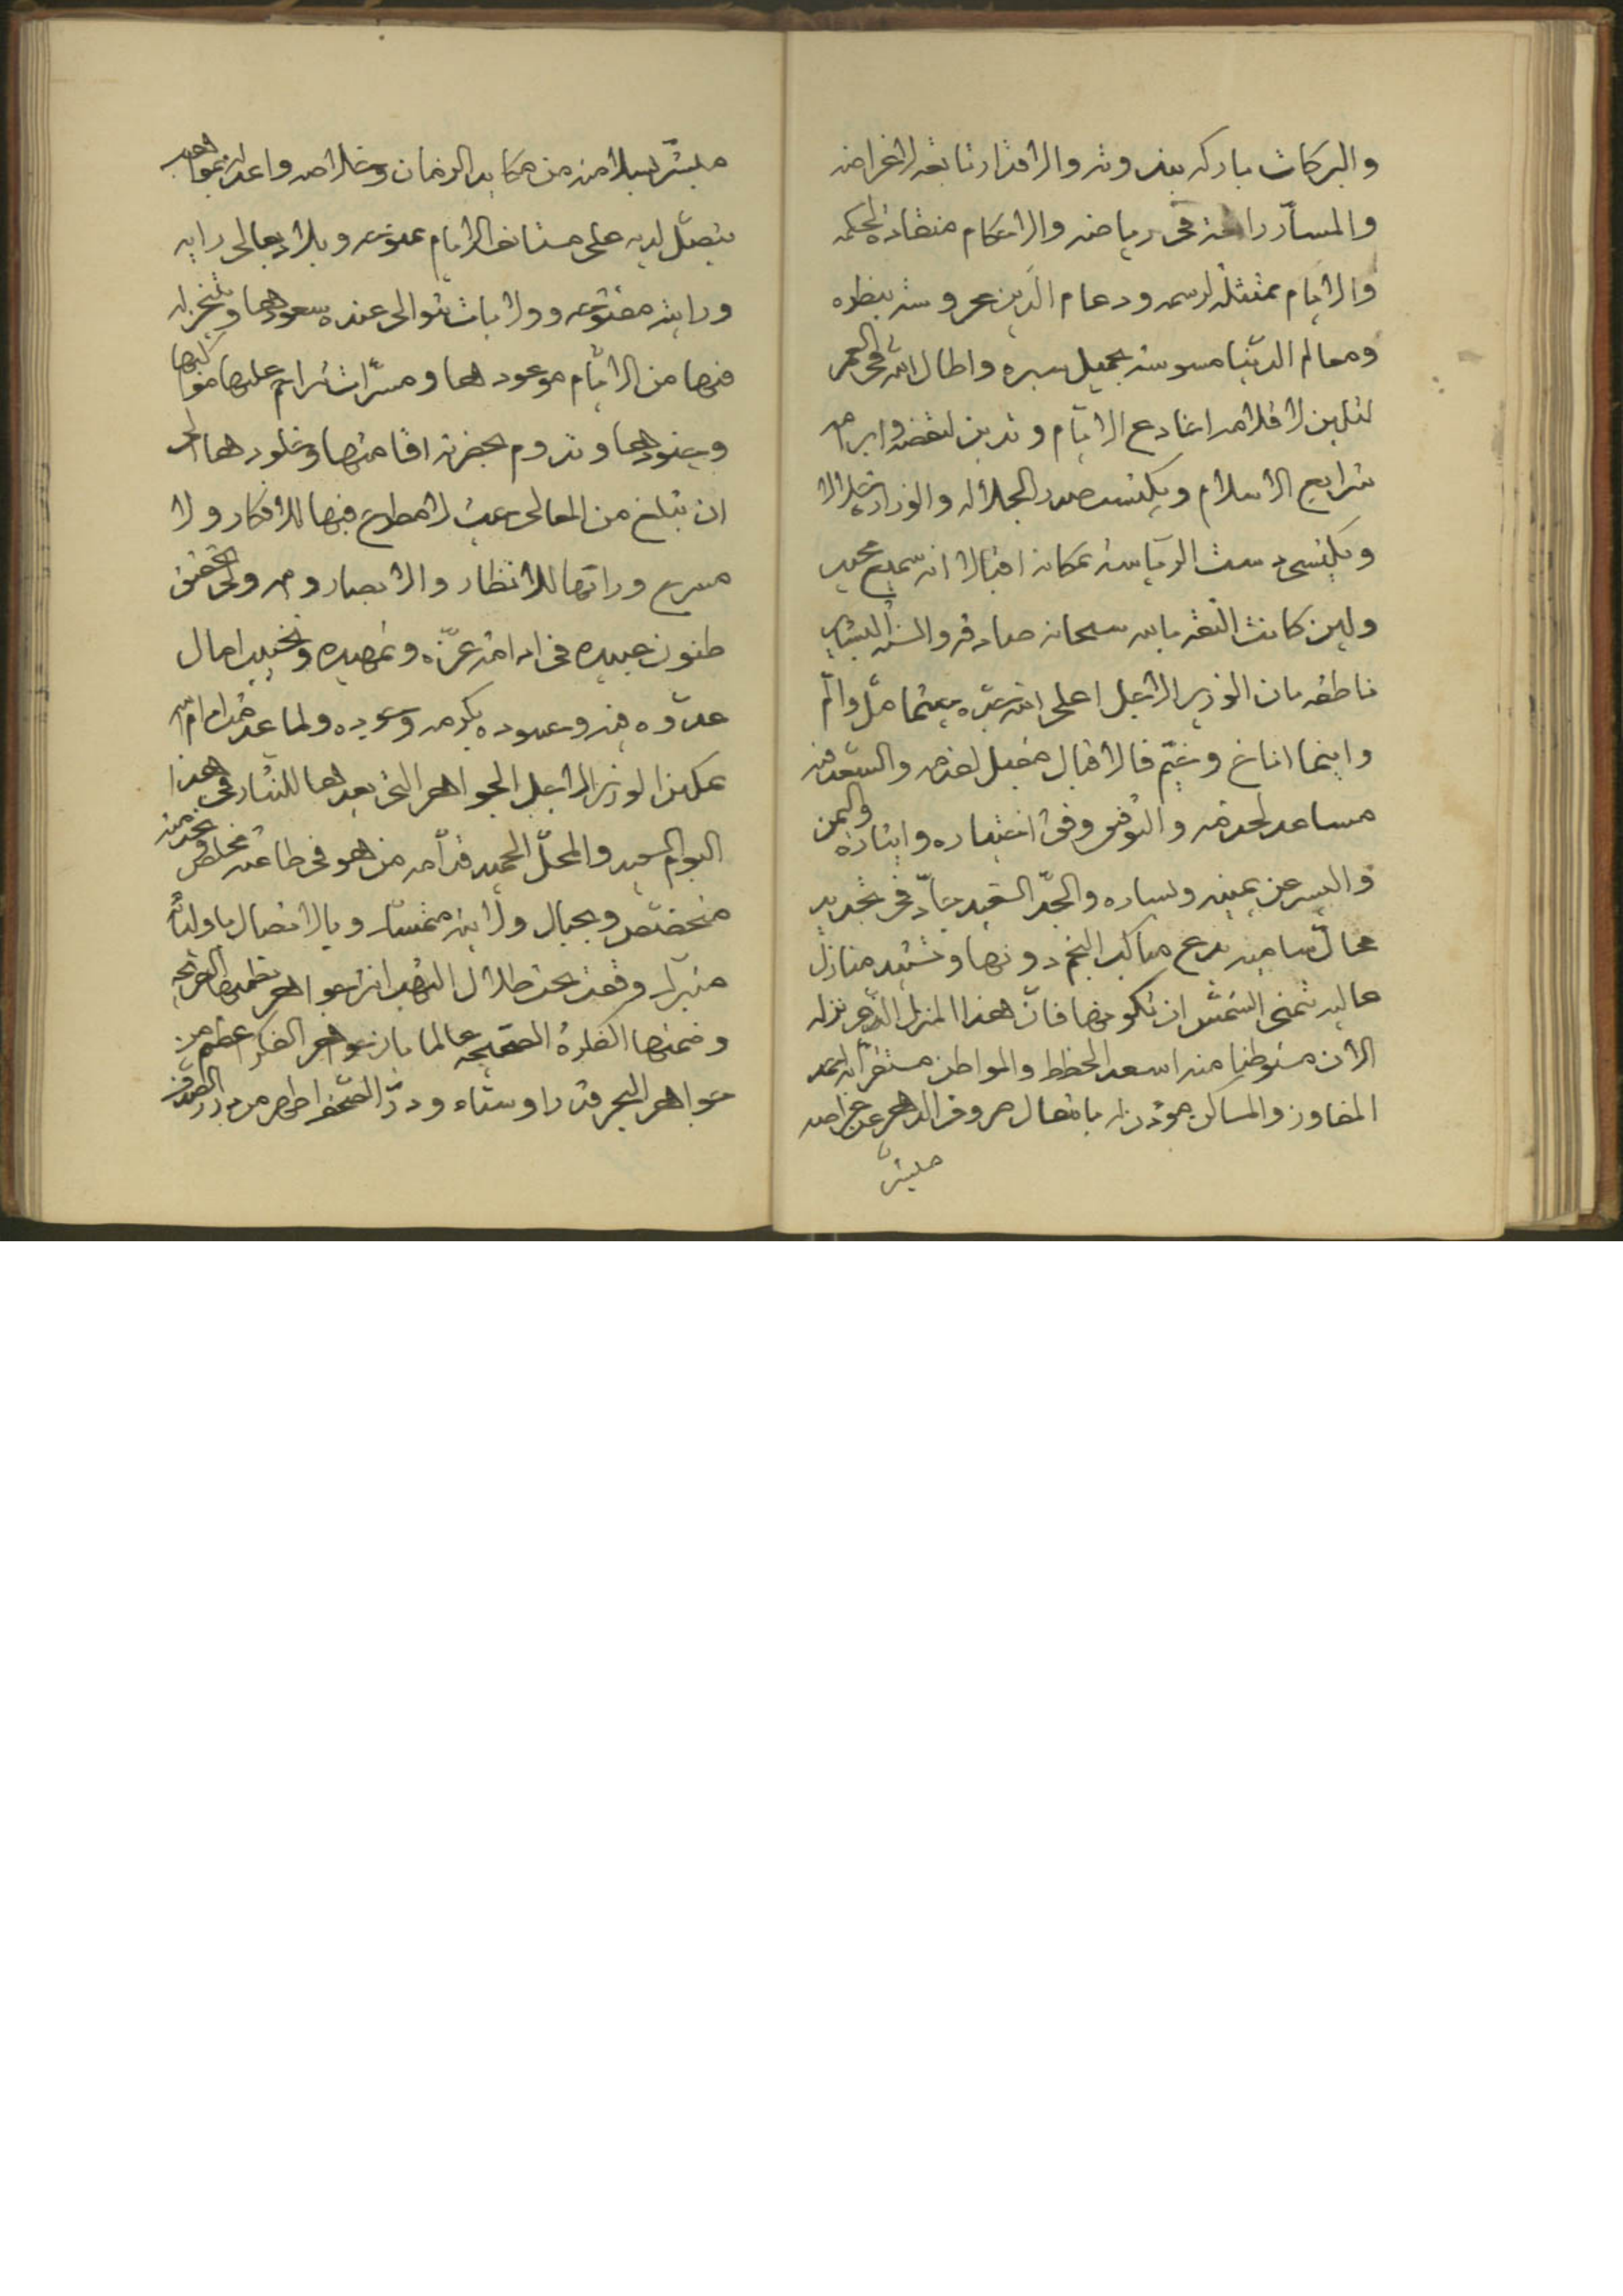 والبركات باركه بفروته والاقدار تابعة لاغراضه
والمسارّ راهنة فى رياضه والاحكام منقاده لحكمه
والايام ممتثلة لرسمه ودعام الدين محروسة بنظره
ومعالم الدّنيا مسوسة بجميل سيره واطال الله فى العمر
لتلين لاقلامه اخادع الايّام وتدين لنقضه وابرامه
شرايع الاسلام ويكتسب صدر الجلاله والوزارة جلالا
ويكتسى دست الرياسة بمكانه اقبالا انه سميع مجيب
ولين كانت الثقة بالله سبحانه صادقه والسنة البشاير
ناطقه بان الوزير الاجل اعلى الله جدّه حيثما حلّ والمّ
واينما اناخ وخيّم فالاقبال مقبل لغرضه والسّعد فيه
مساعد لخدمته والتوفيق وفق اختياره وايثاره واليمن
واليسر عن يمينه ويساره والجدّ السّعيد جادّ فى تجديد
محالّ ساميه تدع مناكب النجم دونها وتشييد منازل
عاليه تتمنى الشّمس ان تكونها فانّ هذا المنزل الّذى نزله
الان متوطنا منه اسعد الخطط والمواطن مستقرّا به احمد
المفاوز والمساكن مؤذن له بانتقال صروف الدهر عن
مبشّر
مبشّر بسلامته من مكايد الزمان وخلاصه واعد له بمواهب
يتصل لديه على مستانف الايام وبلاد بعالى رايه
ورايته مفتوحه وولايات تتوالى عنده سعودها وينجز له
فيها من الايّام موعودها ومسرّات تزاحم عليها مواكبها
وجنودها وتدوم بحضرته اقامتها وخلودها الى
ان تبلغ من المعالى حيث لا مطلع فيها للافكار ولا
مسرح وراتها للانظار والابصار وهو ولى تحقيق
ظنون عبيده فى ادامة عزّه وتمهيده وتخييب امال
عدوّه فيه وحسوده بكرمه وجوده ولما عدم خدام امّه
تمكين الوزير الاجل الجواهر التى يعدها للنثار فى هذا
اليوم السعيد والمحلّ الحميد قدّامه من هو فى طاعته مخلص وبخدمته
متخصّص وبحبال ولايته متمسّك وبالاتصال باوليائه
متبرّك وقفت تحت ظلال الهيبة انثر جواهر نظمتها القريحة
وضمنتها الفكرة الصّحيحه عالما بان جواهر الفكر اعظم من
جواهر البحر قدرا وسناء ودرّ الصّحف اطهر من درر الصّدف